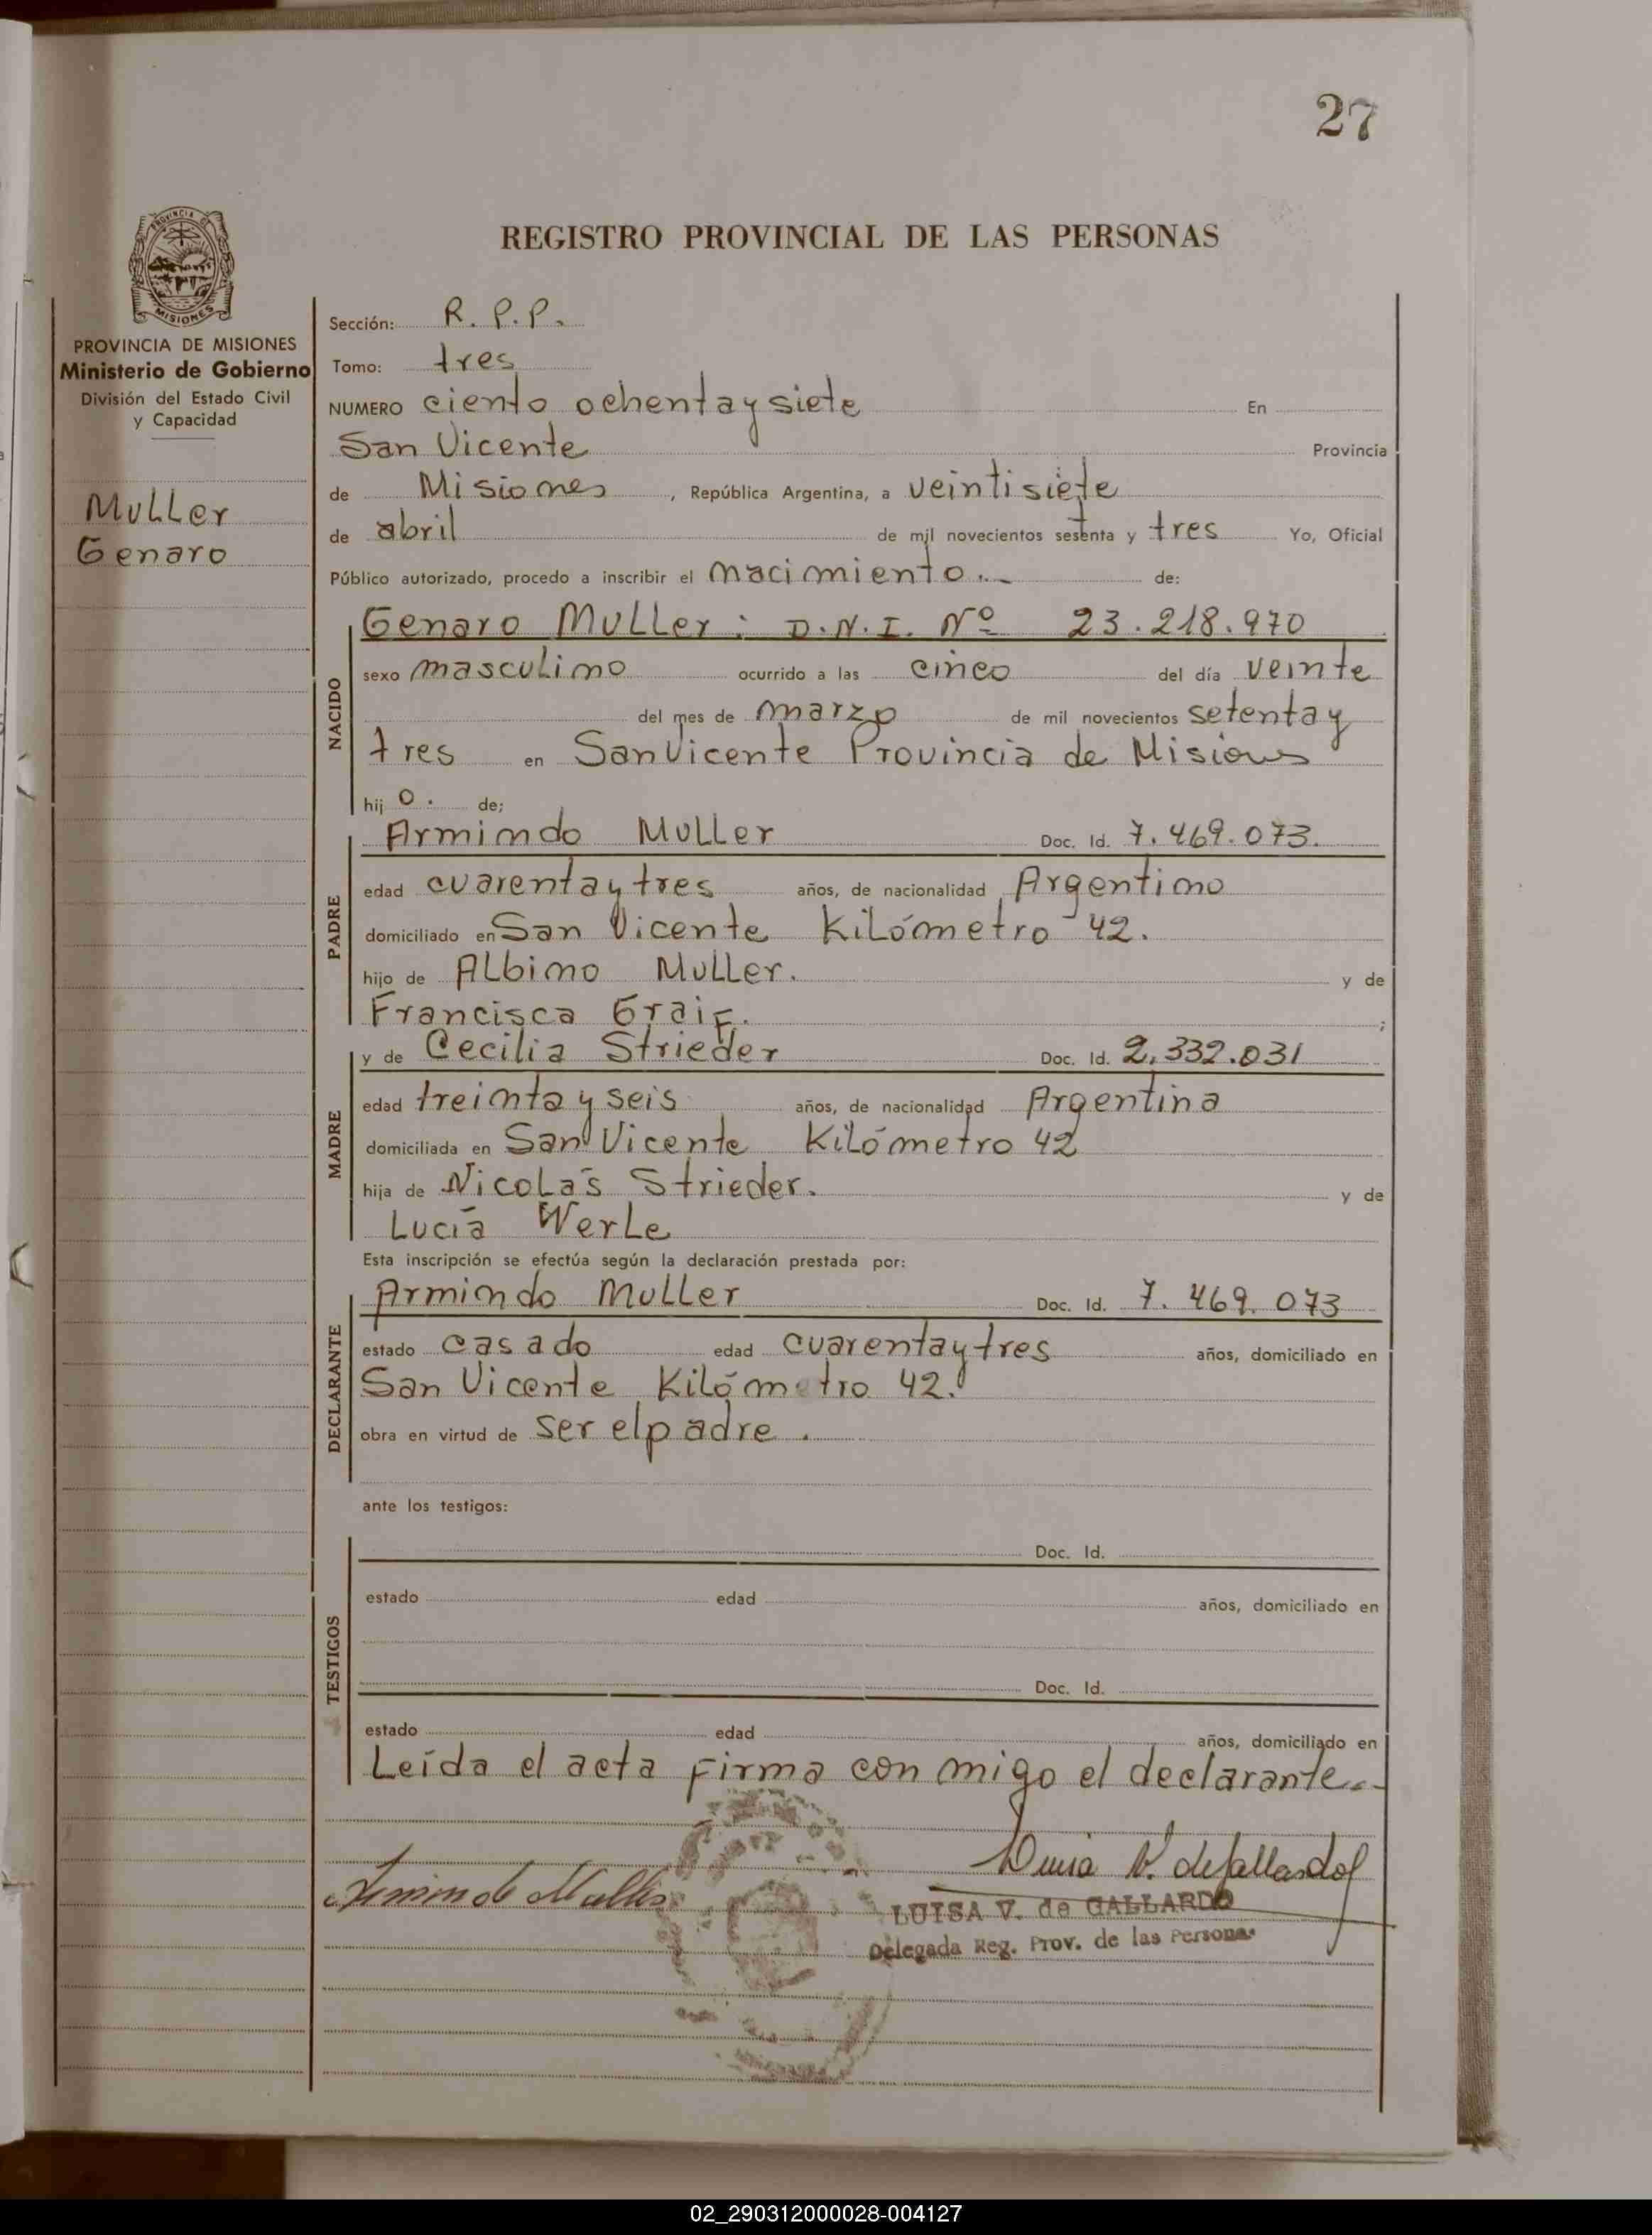 27
PROVINCIA DE
MISIONES
REGISTRO PROVINCIAL DE LAS PERSONAS
PROVINCIA DE MISIONES
Ministerio de Gobierno
División del Estado Civil
y Capacidad
Muller
Genaro
Sección: R. P. P.
Tomo: tres
NUMERO ciento ochenta y siete En
San Vicente Provincia
de Misiones, República Argentina, a veintisiete
de abril de mil novecientos setenta y tres Yo, Oficial
Público autorizado, procedo a inscribir el nacimiento.- de:
NACIDO
Genaro Muller: D.N.I. Nº 23.218.970
sexo masculino ocurrido a las cinco del día veinte
del mes de marzo de mil novecientos setenta y
tres en San Vicente Provincia de Misiones
hijo. de;
PADRE
Armindo Muller Doc. Id. 7.469.073.
edad cuarenta y tres años, de nacionalidad Argentino
domiciliado en San Vicente Kilómetro 42.
hijo de Albino Muller. y de
Francisca Graif. ;
MADRE
y de Cecilia Strieder Doc. Id. 2.332.031
edad treinta y seis años, de nacionalidad Argentina
domiciliada en San Vicente Kilómetro 42
hija de Nicolás Strieder. y de
Lucía Werle
Esta inscripción se efectúa según la declaración prestada por:
DECLARANTE
Armindo Muller Doc. Id. 7.469.073
estado casado edad cuarenta y tres años, domiciliado en
San Vicente Kilómetro 42.
obra en virtud de ser el padre.
ante los testigos:
TESTIGOS
Doc. Id.
estado edad años, domiciliado en
Doc. Id.
estado edad años, domiciliado en
Leída el acta firma con migo el declarante.-
Armindo Muller
Luisa V. de Gallardo
LUISA V. de GALLARDO
Delegada Reg. Prov. de las Personas
02_290312000028-004127